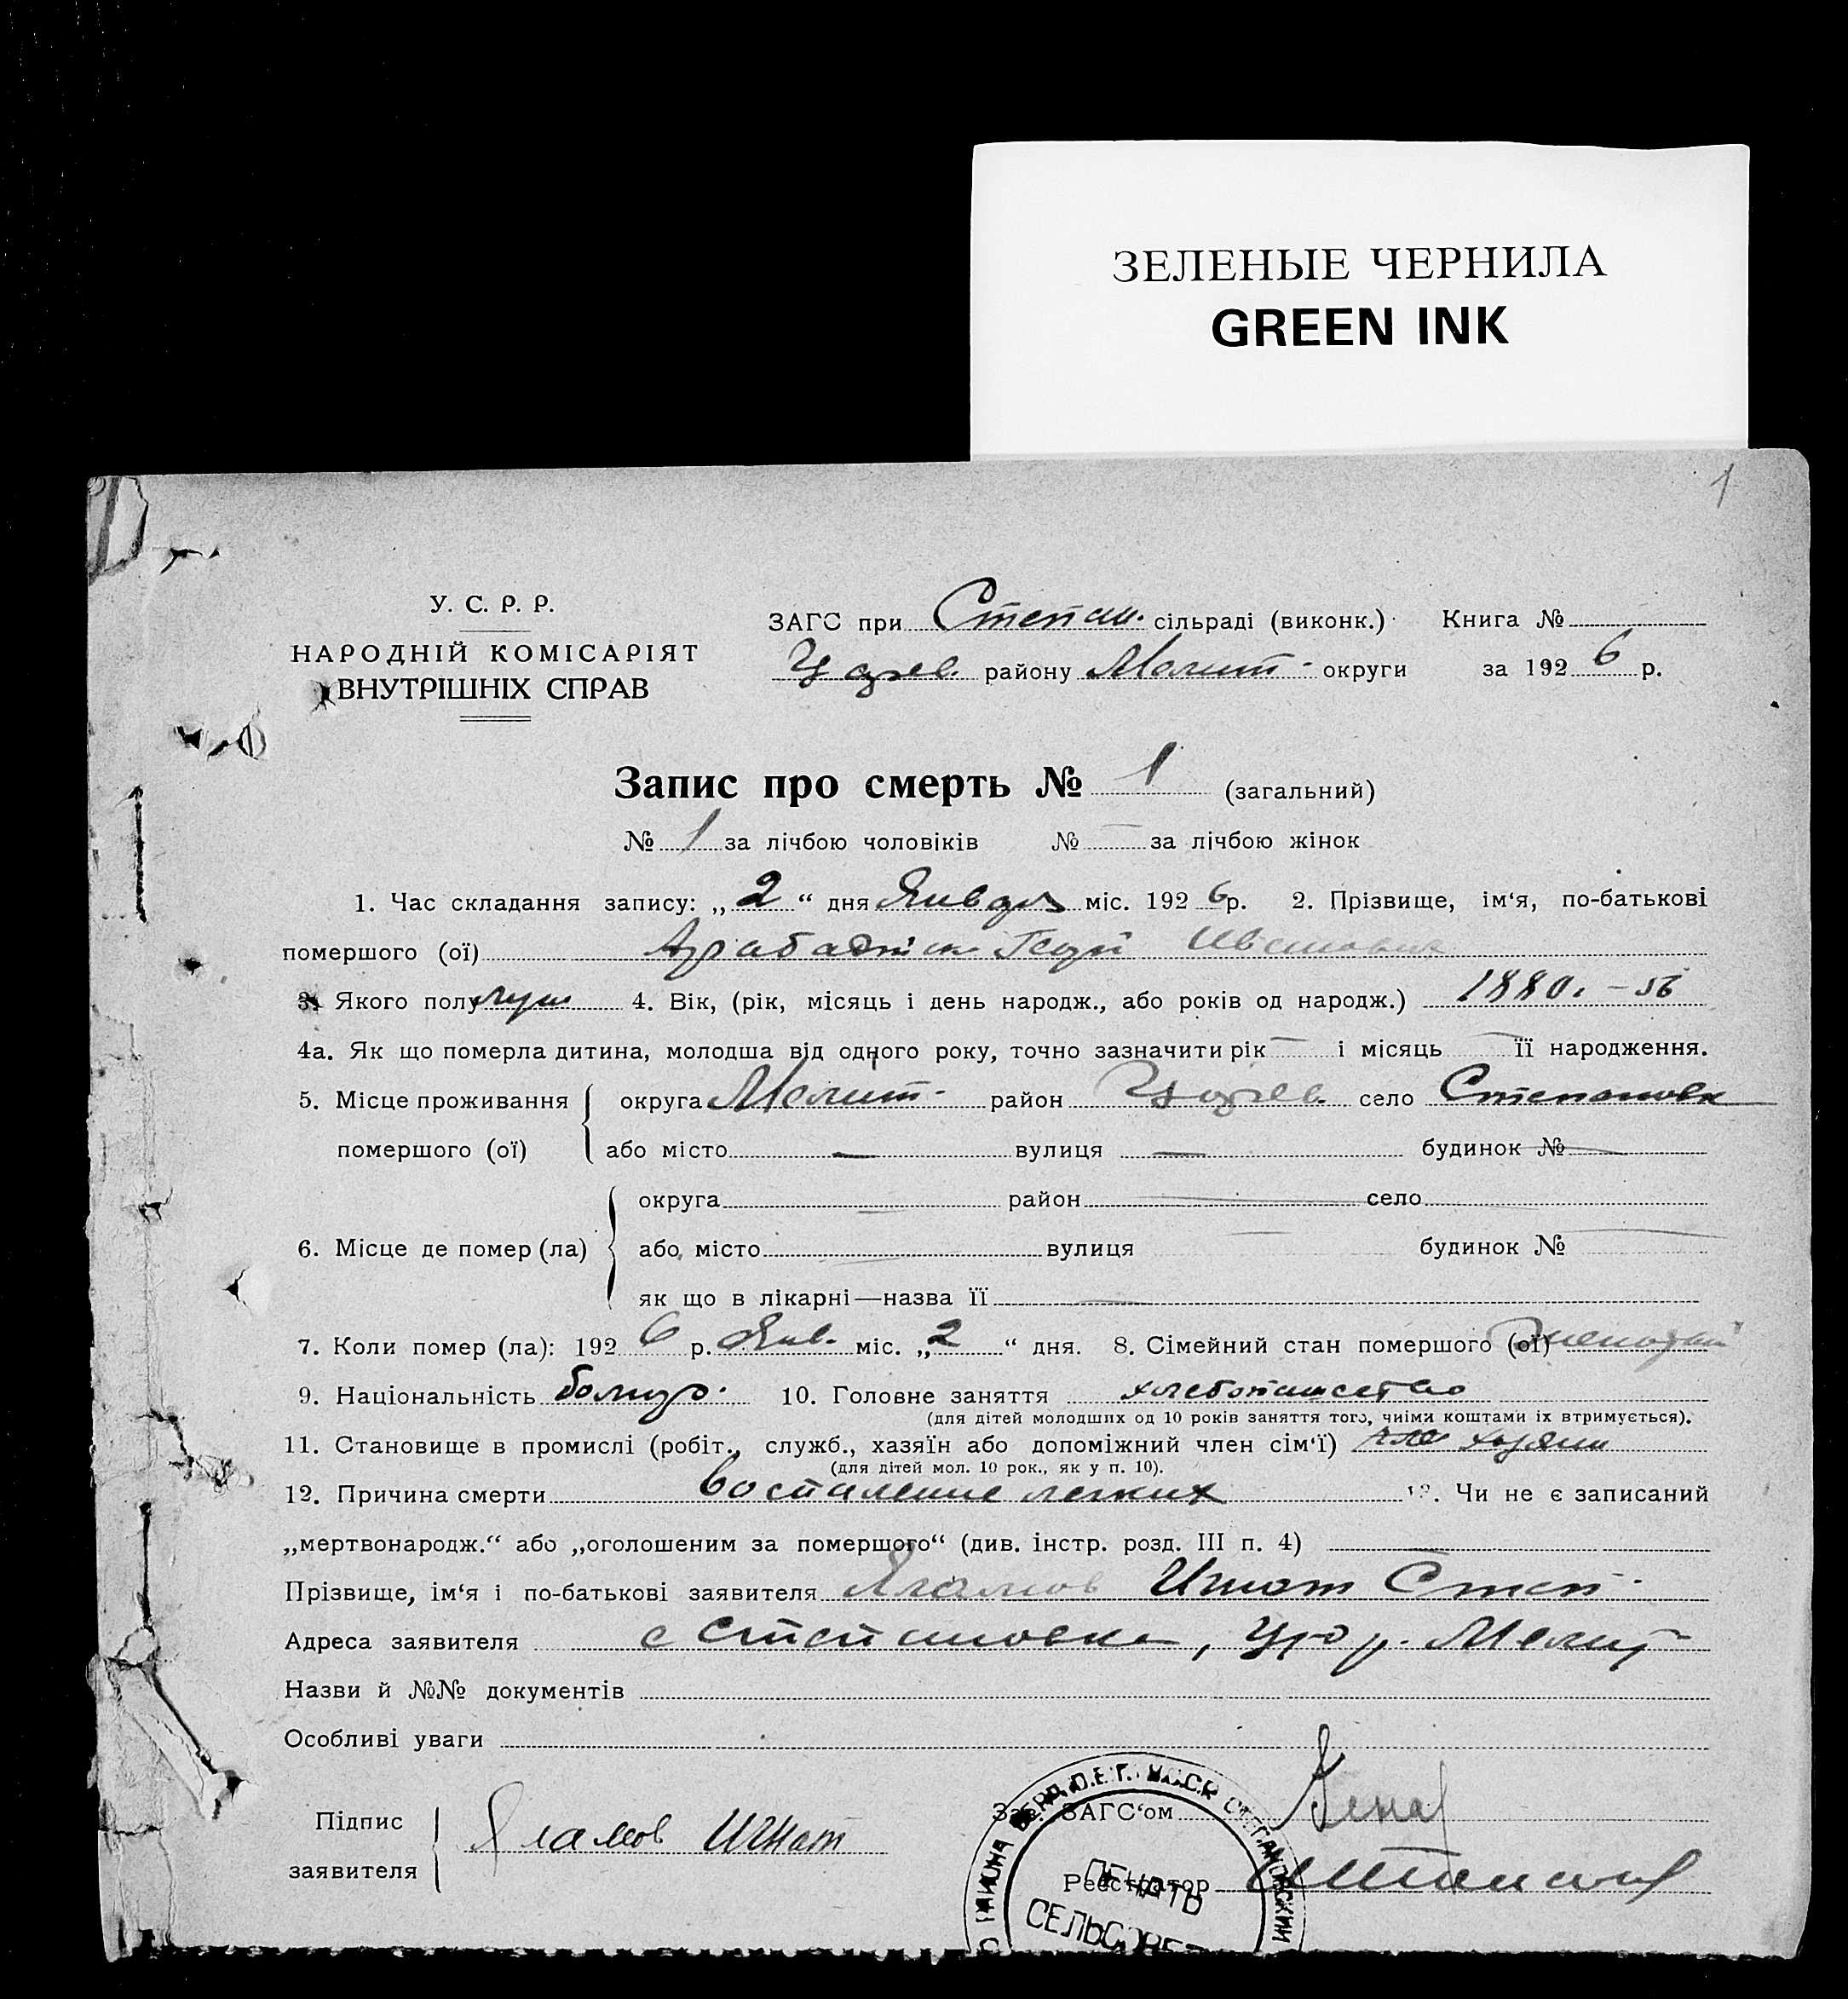 ЗЕЛЕНЫЕ ЧЕРНИЛА
GREEN INK
1
У. С. Р. Р.
НАРОДНІЙ КОМІСАРІЯТ
ВНУТРІШНІХ СПРАВ
ЗАГС при Степан. сільраді (виконк.) Книга №
району Мелит. округи за 1926 р.
Запис про смерть № 1 (загальний)
№ 1 за лічбою чоловіків № — за лічбою жінок
1. Час складання запису: „2“ дня Января міс. 1926р. 2. Прізвище, ім'я, по-батькові
помершого (ої) Иванович
3. Якого полу муж 4. Вік, (рік, місяць і день народж., або років од народж.) 1880.
4а. Як що померла дитина, молодша від одного року, точно зазначити рік — і місяць — її народження.
5. Місце проживання округа Мелит. район село Степановка
помершого (ої) або місто — вулиця — будинок № —
округа — район — село
6. Місце де помер (ла) або місто — вулиця — будинок № —
як що в лікарні—назва її —
7. Коли помер (ла): 1926 р. Янв. міс. „2“ дня. 8. Сімейний стан помершого (ої)
9. Національність болгар. 10. Головне заняття хлебопашество
(для дітей молодших од 10 років заняття того, чиїми коштами їх втримується).
11. Становище в промислі (робіт., служб., хазяїн або допоміжний член сім'ї) хозяин
(для дітей мол. 10 рок., як у п. 10).
12. Причина смерти воспаление легких 13. Чи не є записаний
„мертвонародж.“ або „оголошеним за помершого“ (див. інстр. розд. III п. 4)
Прізвище, ім'я і по-батькові заявителя Яламов Игнат Степ.
Адреса заявителя с Степановка, Мелит
Назви й №№ документів
Особливі уваги
Підпис
заявителя
Яламов Игнат
Зав. ЗАГС'ом
Реєстратор
ПЕЧАТЬ
СЕЛЬСОВЕТ